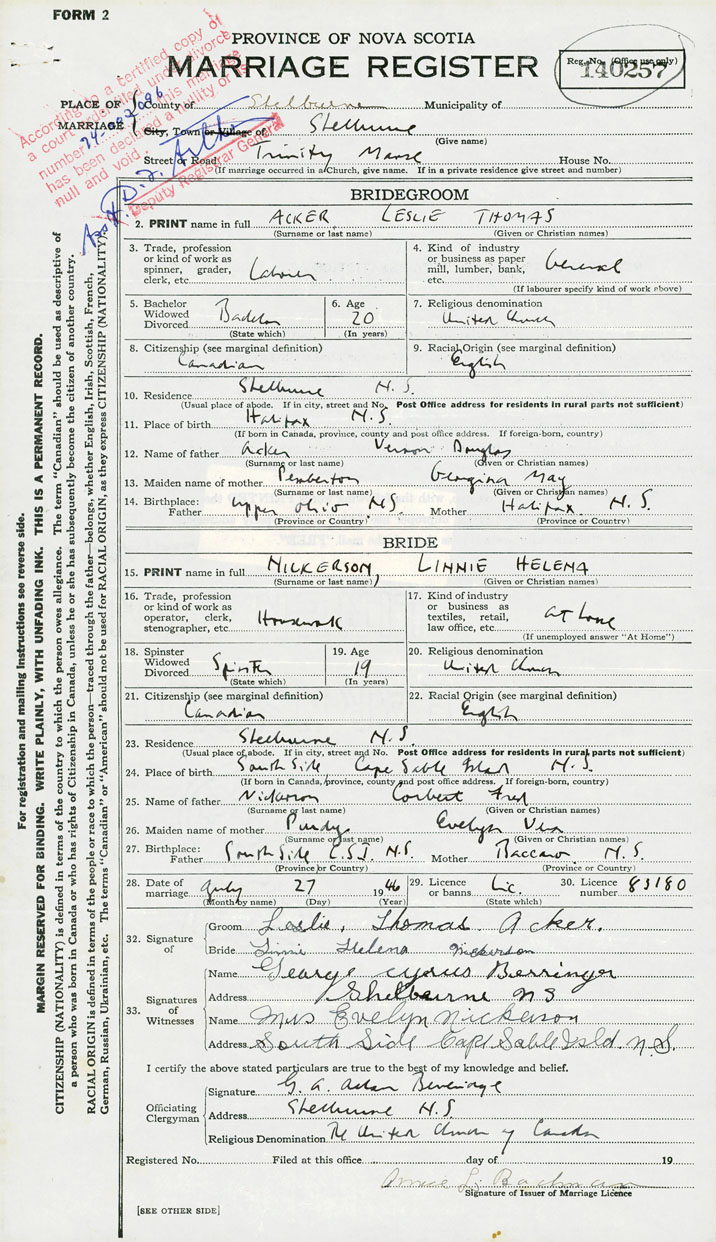 FORM 2
PROVINCE OF NOVA SCOTIA
MARRIAGE REGISTER
Reg. No. (Office use only)
140257
According to a certified copy of
a court order under divorce
number 74-002096 this marriage
has been declared a nullity or is
null and void.
Deputy Registrar General
PLACE OF MARRIAGE
County of Shelburne Municipality of
City, Town or Village of Shelburne
(Give name)
Street or Road Trinity Manse House No.
(If marriage occurred in a Church, give name. If in a private residence give street and number)
BRIDEGROOM
2. PRINT name in full ACKER LESLIE THOMAS
(Surname or last name) (Given or Christian names)
3. Trade, profession or kind of work as spinner, grader, clerk, etc. Laborer
4. Kind of industry or business as paper mill, lumber, bank, etc. General
(If labourer specify kind of work above)
5. Bachelor Widowed Divorced Bachelor
(State which)
6. Age 20
(In years)
7. Religious denomination United Church
8. Citizenship (see marginal definition) Canadian
9. Racial Origin (see marginal definition) English
10. Residence Shelburne N.S.
(Usual place of abode. If in city, street and No. Post Office address for residents in rural parts not sufficient)
11. Place of birth Halifax N.S.
(If born in Canada, province, county and post office address. If foreign-born, country)
12. Name of father Acker Vernon Douglas
(Surname or last name) (Given or Christian names)
13. Maiden name of mother Pemberton Georgina May
(Surname or last name) (Given or Christian names)
14. Birthplace: Father Upper Ohio N.S. Mother Halifax N.S.
(Province or Country) (Province or Country)
BRIDE
15. PRINT name in full NICKERSON, LINNIE HELENA
(Surname or last name) (Given or Christian names)
16. Trade, profession or kind of work as operator, clerk, stenographer, etc. Housework
17. Kind of industry or business as textiles, retail, law office, etc. At home
(If unemployed answer "At Home")
18. Spinster Widowed Divorced Spinster
(State which)
19. Age 19
(In years)
20. Religious denomination United Church
21. Citizenship (see marginal definition) Canadian
22. Racial Origin (see marginal definition) English
23. Residence Shelburne N.S.
(Usual place of abode. If in city, street and No. Post Office address for residents in rural parts not sufficient)
24. Place of birth South Side Cape Sable Island N.S.
(If born in Canada, province, county and post office address. If foreign-born, country)
25. Name of father Nickerson Corbert Fred
(Surname or last name) (Given or Christian names)
26. Maiden name of mother Purdy Evelyn Vera
(Surname or last name) (Given or Christian names)
27. Birthplace: Father South Side C.S.I. N.S. Mother Baccaro N.S.
(Province or Country) (Province or Country)
28. Date of marriage July 27 1946
(Month by name) (Day) (Year)
29. Licence or banns Lic.
(State which)
30. Licence number 83180
32. Signature of
Groom Leslie, Thomas Acker.
Bride Linnie Helena Nickerson
33. Signatures of Witnesses
Name George Cyrus Berringer
Address Shelburne NS
Name Mrs Evelyn Nickerson
Address South Side Cape Sable Isld. N.S.
I certify the above stated particulars are true to the best of my knowledge and belief.
Officiating Clergyman
Signature G. A. Allan Beveridge
Address Shelburne N.S
Religious Denomination The United Church of Canada
Registered No. Filed at this office day of 19
Signature of Issuer of Marriage Licence
[SEE OTHER SIDE]
For registration and mailing instructions see reverse side.
MARGIN RESERVED FOR BINDING. WRITE PLAINLY, WITH UNFADING INK. THIS IS A PERMANENT RECORD.
CITIZENSHIP (NATIONALITY) is defined in terms of the country to which the person owes allegiance. The term "Canadian" should be used as descriptive of
a person who was born in Canada or who has rights of Citizenship in Canada, unless he or she has subsequently become the citizen of another country.
RACIAL ORIGIN is defined in terms of the people or race to which the person—traced through the father—belongs, whether English, Irish, Scottish, French,
German, Russian, Ukrainian, etc. The terms "Canadian" or "American" should not be used for RACIAL ORIGIN, as they express CITIZENSHIP (NATIONALITY).